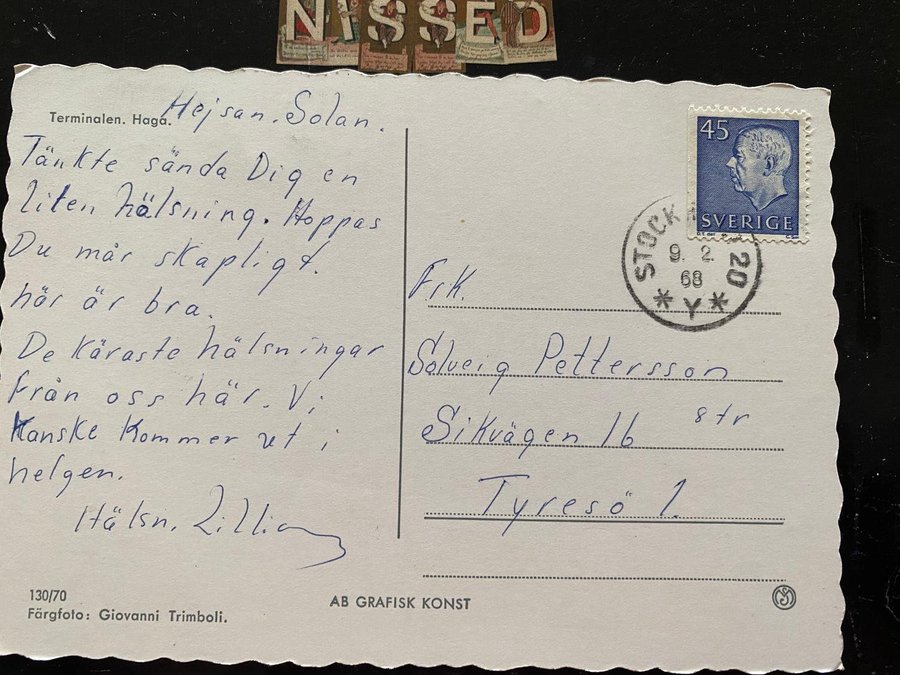 NISSED
Terminalen. Haga.
Hejsan. Solan.
Tänkte sända Dig en
liten hälsning. Hoppas
Du mår skapligt.
här är bra.
De käraste hälsningar
från oss här. Vi
Kanske kommer ut i
helgen.
Hälsn. Lillian
45
SVERIGE
STOCK 20
9. 2.
68
* Y *
Frk.
Solveig Pettersson
Sikvägen 16 8tr
Tyresö 1.
130/70
Färgfoto: Giovanni Trimboli.
AB GRAFISK KONST